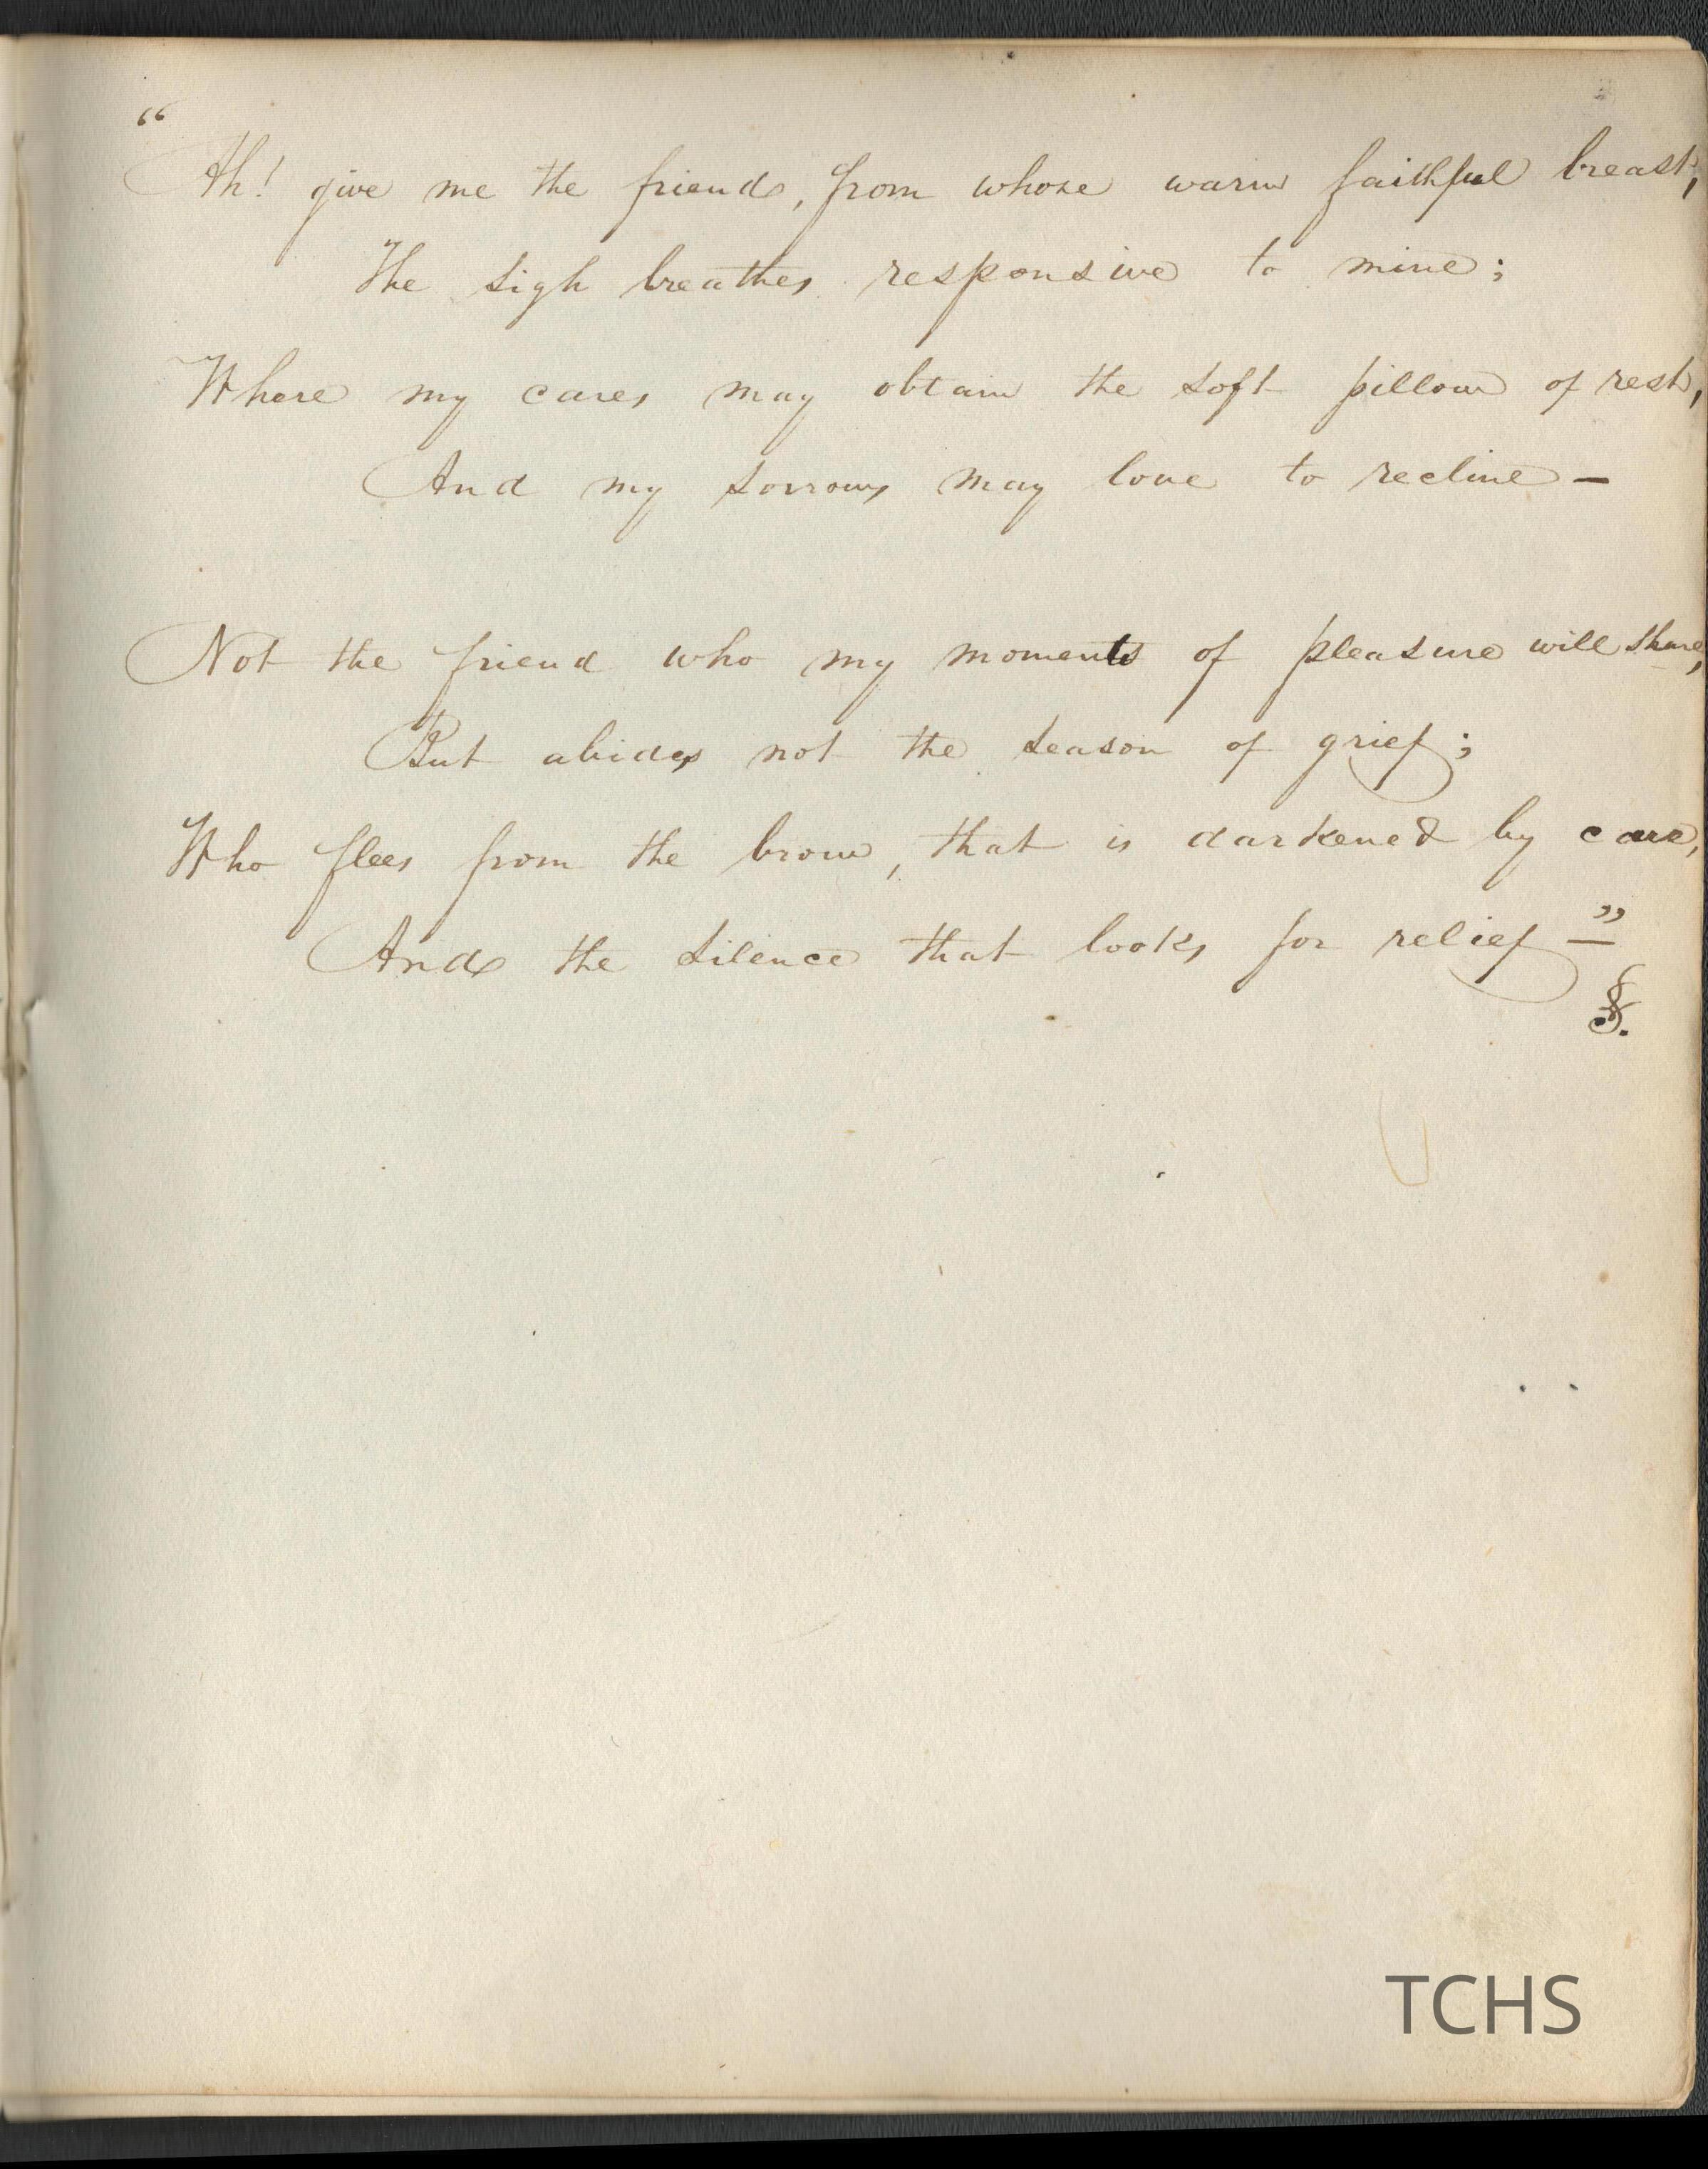 “
Ah! give me the friend, from whose warm faithful breast,
The sigh breathes responsive to mine;
Where my cares may obtain the soft pillow of rest,
And my sorrows may love to recline –
Not the friend who my moments of pleasure will share,
But abides not the season of grief;
Who flees from the brow, that is darkened by care,
And the silence that looks for relief – ”
TCHS